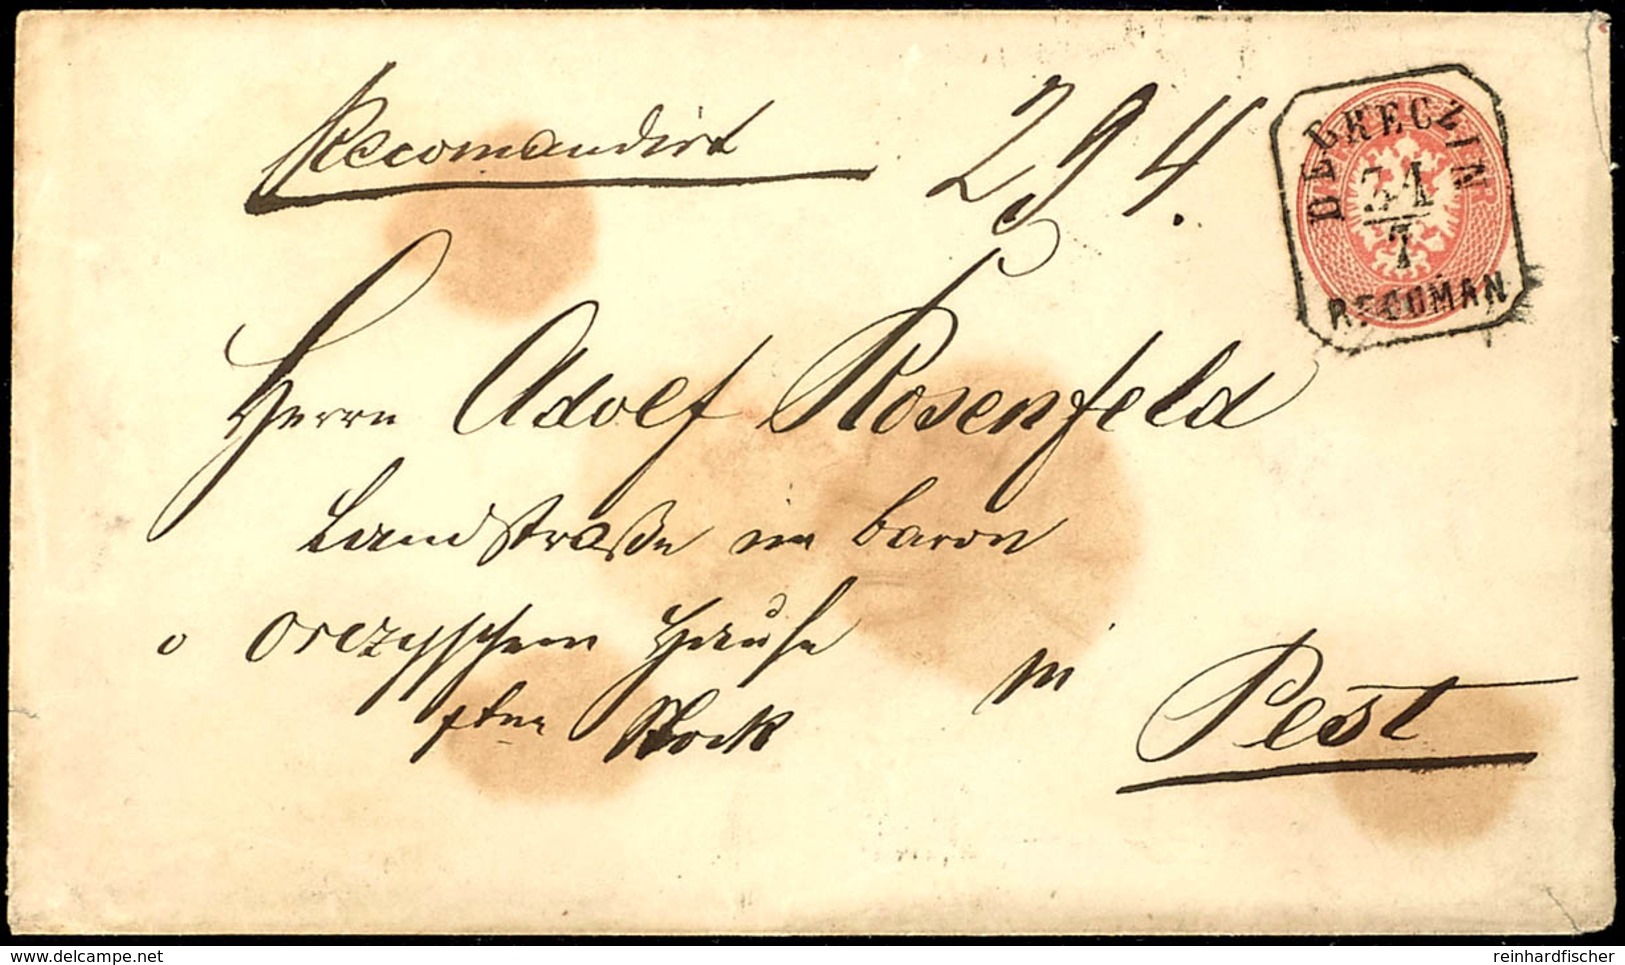 Recomandirt 294.
DEBRECZIN
31
7
RECOMAN
Herrn Adolf Rosenfeld
Landstraße im baron
Orczyschen Hause
Stock
in Pest
delcampe.net
reinhardfischer